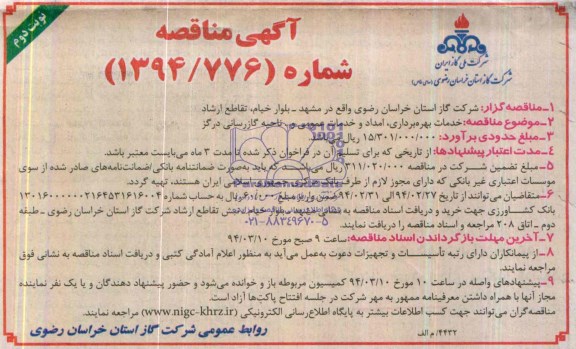 نوبت دوم
آگهی مناقصه
شماره (۱۳۹۴/۷۷۶)
شرکت ملی گاز ایران
شرکت گاز استان خراسان رضوی (سهامی خاص)
۱-مناقصه‌گزار: شرکت گاز استان خراسان رضوی واقع در مشهد ـ بلوار خیام، تقاطع ارشاد
۲-موضوع مناقصه: خدمات بهره‌برداری، امداد و خدمات عمومی ناحیه گازرسانی درگز
۳-مبلغ حدودی برآورد: ۱۵/۳۰۱/۰۰۰/۰۰۰ ریال
۴-مدت اعتبار پیشنهادها: از تاریخی که برای تسلیم آن در فراخوان ذکر شده تا مدت ۳ ماه می‌بایست معتبر باشد.
۵-مبلغ تضمین شرکت در مناقصه ۳۱۱/۰۲۰/۰۰۰ ریال می‌باشد که باید به‌صورت ضمانتنامه بانکی/ضمانت‌نامه‌های صادر شده از سوی
موسسات اعتباری غیر بانکی که دارای مجوز لازم از طرف بانک ایران هستند، تهیه گردد.
۶-متقاضیان می‌توانند از تاریخ ۹۴/۰۲/۲۷ الی ۹۴/۰۲/۳۱ ضمن واریز مبلغ ریال به حساب شماره
بانک کشاورزی جهت خرید و دریافت اسناد مناقصه به نشانی مشهد، بلوار خیام، نبش تقاطع ارشاد شرکت گاز استان خراسان رضوی ـ طبقه
دوم ـ اتاق ۲۰۸ مراجعه و اسناد مناقصه را دریافت نمایند.
۰۲۱-۸۸۳۴۹۶۷۰-۵
۷-آخرین مهلت بازگرداندن اسناد مناقصه: ساعت ۹ صبح مورخ ۹۴/۰۳/۱۰
۸-از پیمانکاران دارای رتبه تأسیسات و تجهیزات دعوت به‌عمل می‌آید به منظور اعلام آمادگی کتبی و دریافت اسناد مناقصه به نشانی فوق
مراجعه نمایند.
۹-پیشنهادهای واصله در ساعت ۱۰ مورخ ۹۴/۰۳/۱۰ کمیسیون مربوطه باز و خوانده می‌شود و حضور پیشنهاد دهندگان و یا یک نفر نماینده
مجاز آنها با همراه داشتن معرفینامه ممهور به مهر شرکت در جلسه افتتاح پاکت‌ها آزاد است.
مناقصه‌گران می‌توانند جهت کسب اطلاعات بیشتر به پایگاه اطلاع‌رسانی الکترونیکی (www.nigc-khrz.ir) مراجعه نمایند.
روابط عمومی شرکت گاز استان خراسان رضوی
۴۴۳۲/م الف